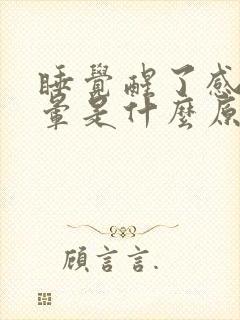 睡覺醒了感
暈是什麼原
顧言言.